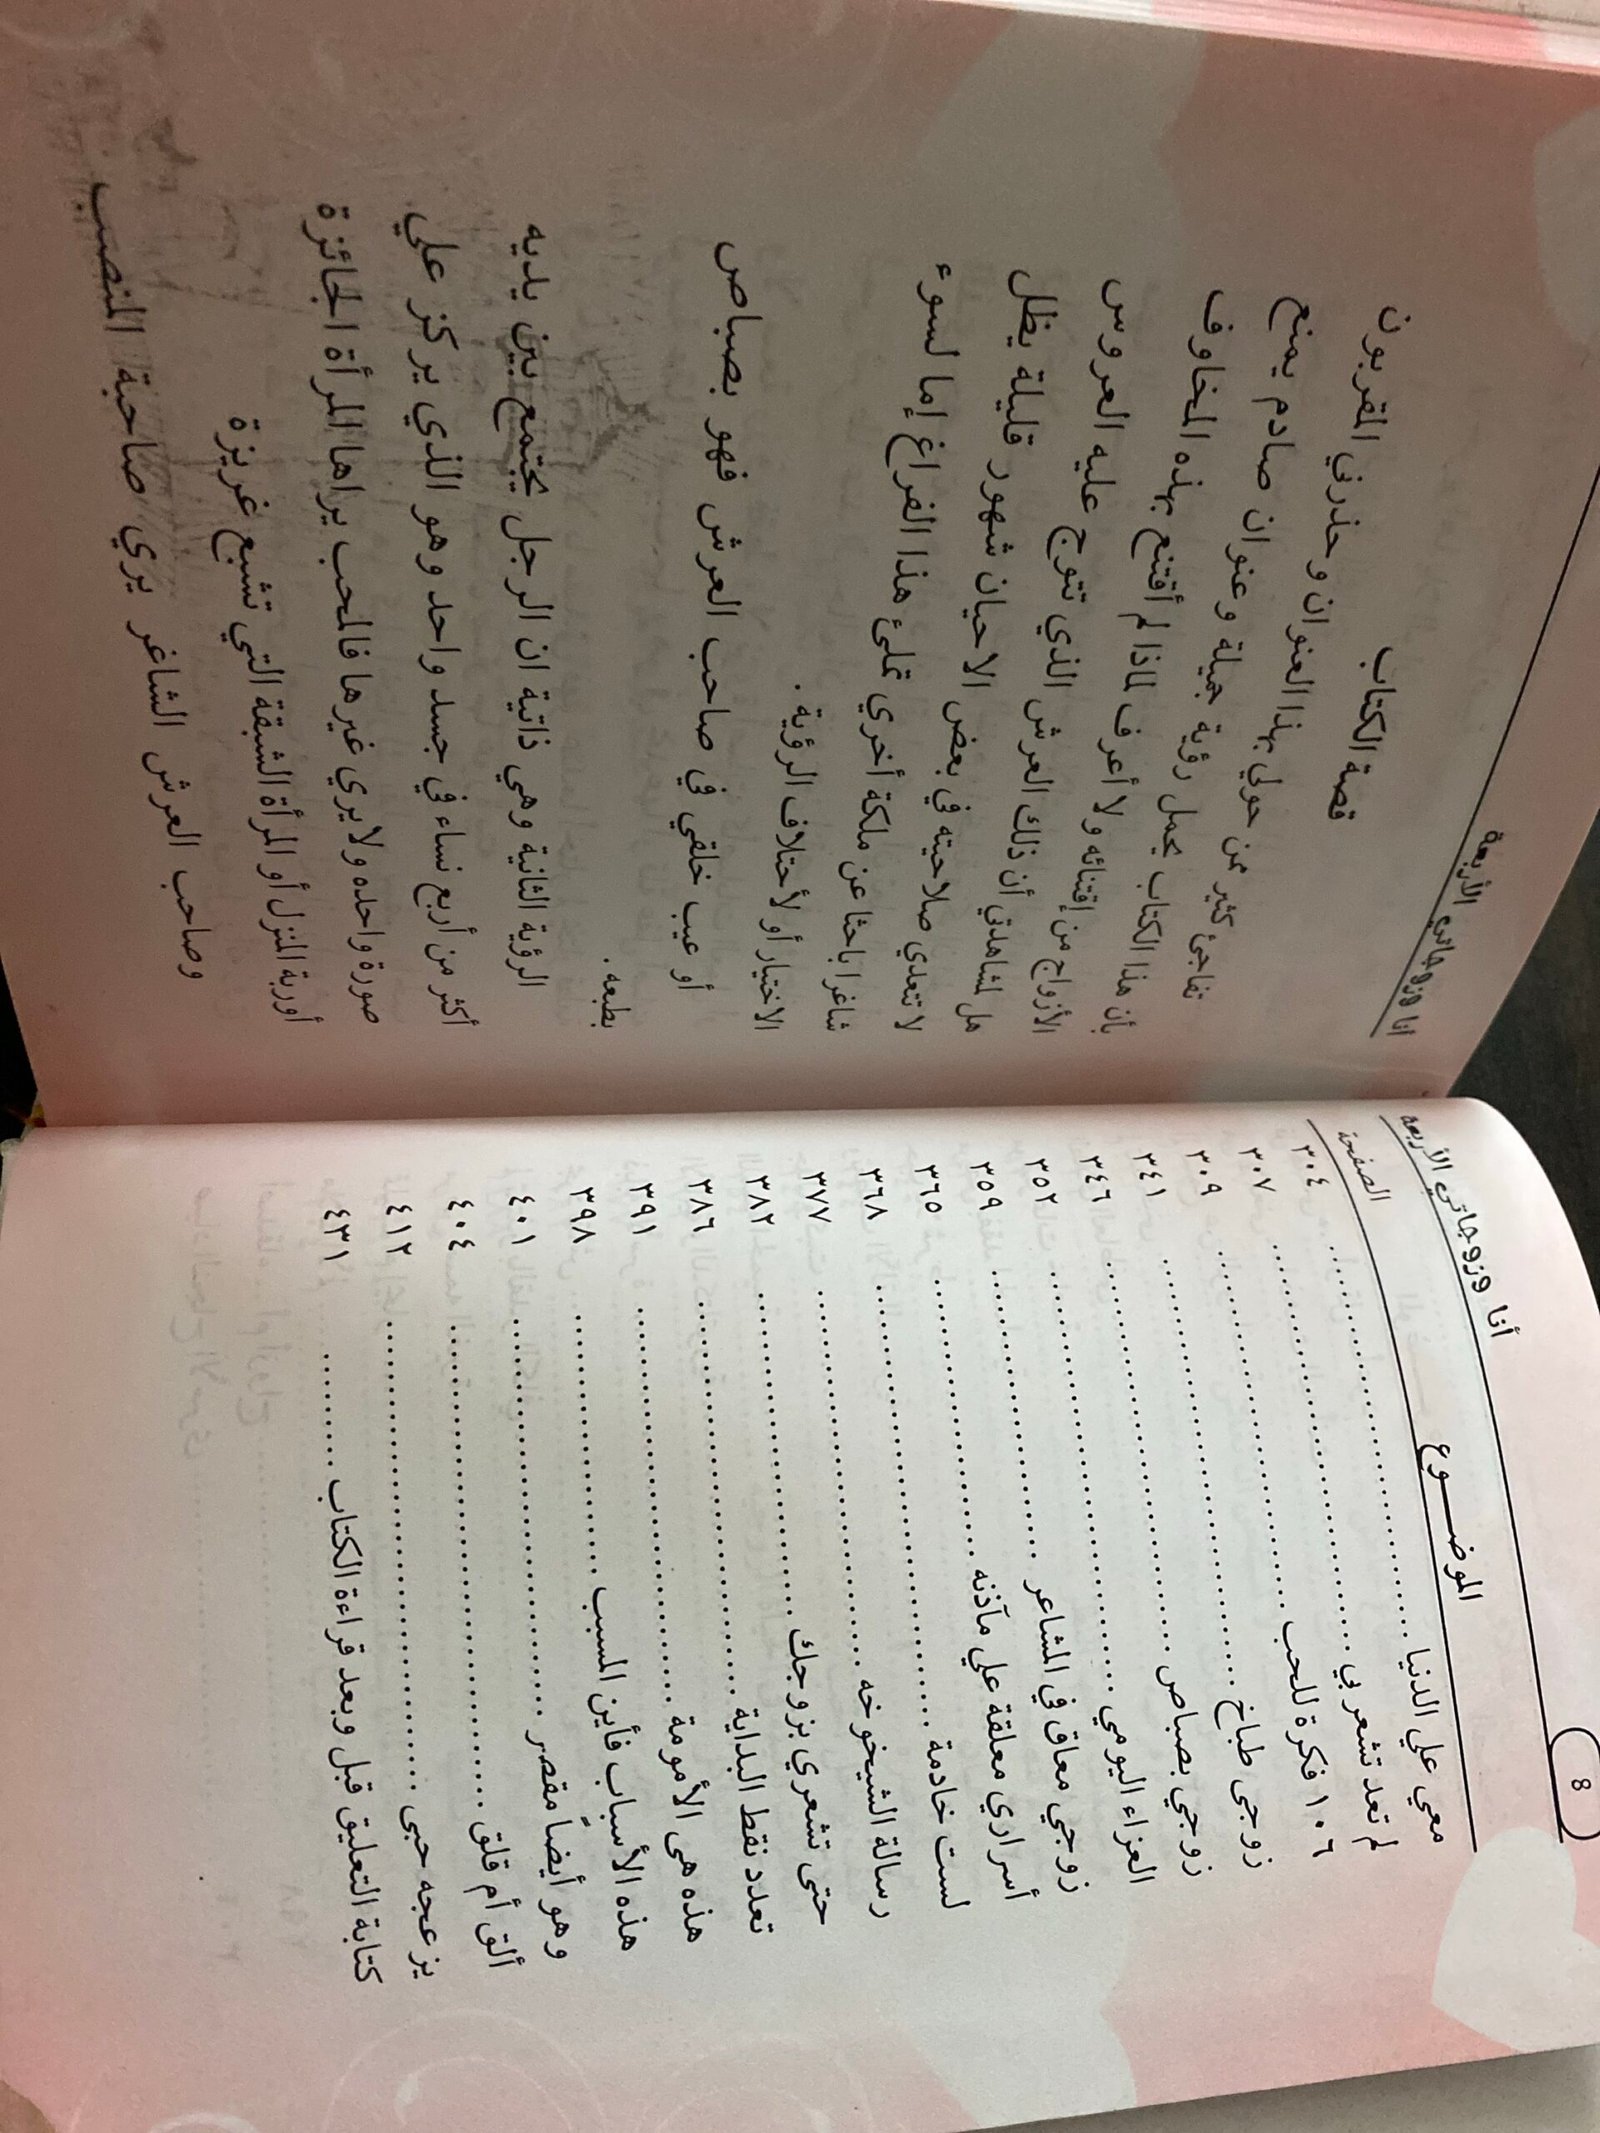 8
أنا وزوجاتي الأربعة
الموضـــوع الصفحة
معي علي الدنيا ........ ٣٠٤
لم تعد تشعر بي ........ ٣٠٧
١٠٦ فكرة للحب ........ ٣٠٩
زوجى طباخ ........ ٣٤١
زوجي بصباص ........ ٣٤٦
العزاء اليومي ........ ٣٥٢
زوجي معاق في المشاعر ........ ٣٥٩
أسراري معلقة علي مآذنه ........ ٣٦٥
لست خادمة ........ ٣٦٨
رسالة الشيخوخه ........ ٣٧٧
حتى تشعري بزوجك ........ ٣٨٢
تعدد نقط البداية ........ ٣٨٦
هذه هى الأمومة ........ ٣٩١
هذه الأسباب فأين المسبب ........ ٣٩٨
وهو أيضاً مقصر ........ ٤٠١
ألق أم قلق ........ ٤٠٤
يزعجه حبى ........ ٤١٢
كتابة التعليق قبل وبعد قراءة الكتاب ........ ٤٣١
أنا وزوجاتي الأربعة
قصة الكتاب
تفاجئ كثير ممن حولي بهذا العنوان وحذرني المقربون
بأن هذا الكتاب يحمل رؤية جميلة وعنوان صادم يمنع
الأزواج من إقتنائه ولا أعرف لماذا لم أقتنع بهذه المخاوف
هل لمشاهدتي أن ذلك العرش الذي تتوج عليه العروس
لا تتعدي صلاحيته في بعض الاحيان شهور قليلة يظل
شاغرا باحثا عن ملكة أخري تملئ هذا الفراغ إما لسوء
الاختيار أو لأختلاف الرؤية .
أو عيب خلقي في صاحب العرش فهو بصباص
بطبعه .
الرؤية الثانية وهي ذاتية ان الرجل يجتمع بين يديه
أكثر من أربع نساء في جسد واحد وهو الذي يركز علي
صورة واحده ولا يري غيرها فالمحب يراها المرأة الجائزة
أوربة المنزل أو المرأة الشبقة التي تشبع غريزة
وصاحب العرش الشاغر يري صاحبة المنصب